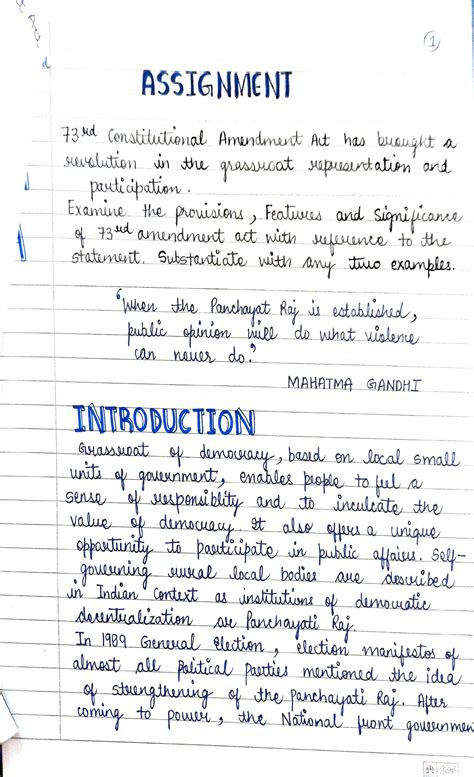 1
ASSIGNMENT
73rd Constitutional Amendment Act has brought a
revolution in the grassroot representation and
participation.
Examine the provisions, Features and Significance
of 73rd amendment act with reference to the
statement. Substantiate with any two examples.
"When the Panchayat Raj is established,
public opinion will do what violence
can never do."
MAHATMA GANDHI
INTRODUCTION
Grassroot of democracy, based on local small
units of government, enables people to feel a
sense of responsiblity and to inculcate the
value of democracy. It also offers a unique
opportunity to participate in public affairs. Self-
governing rural local bodies are described
in Indian Context as institutions of democratic
decentralization or Panchayati Raj.
In 1989 General Election, election manifestos of
almost all Political Parties mentioned the idea
of strengthening of the panchayati Raj. After
coming to power, the National front government